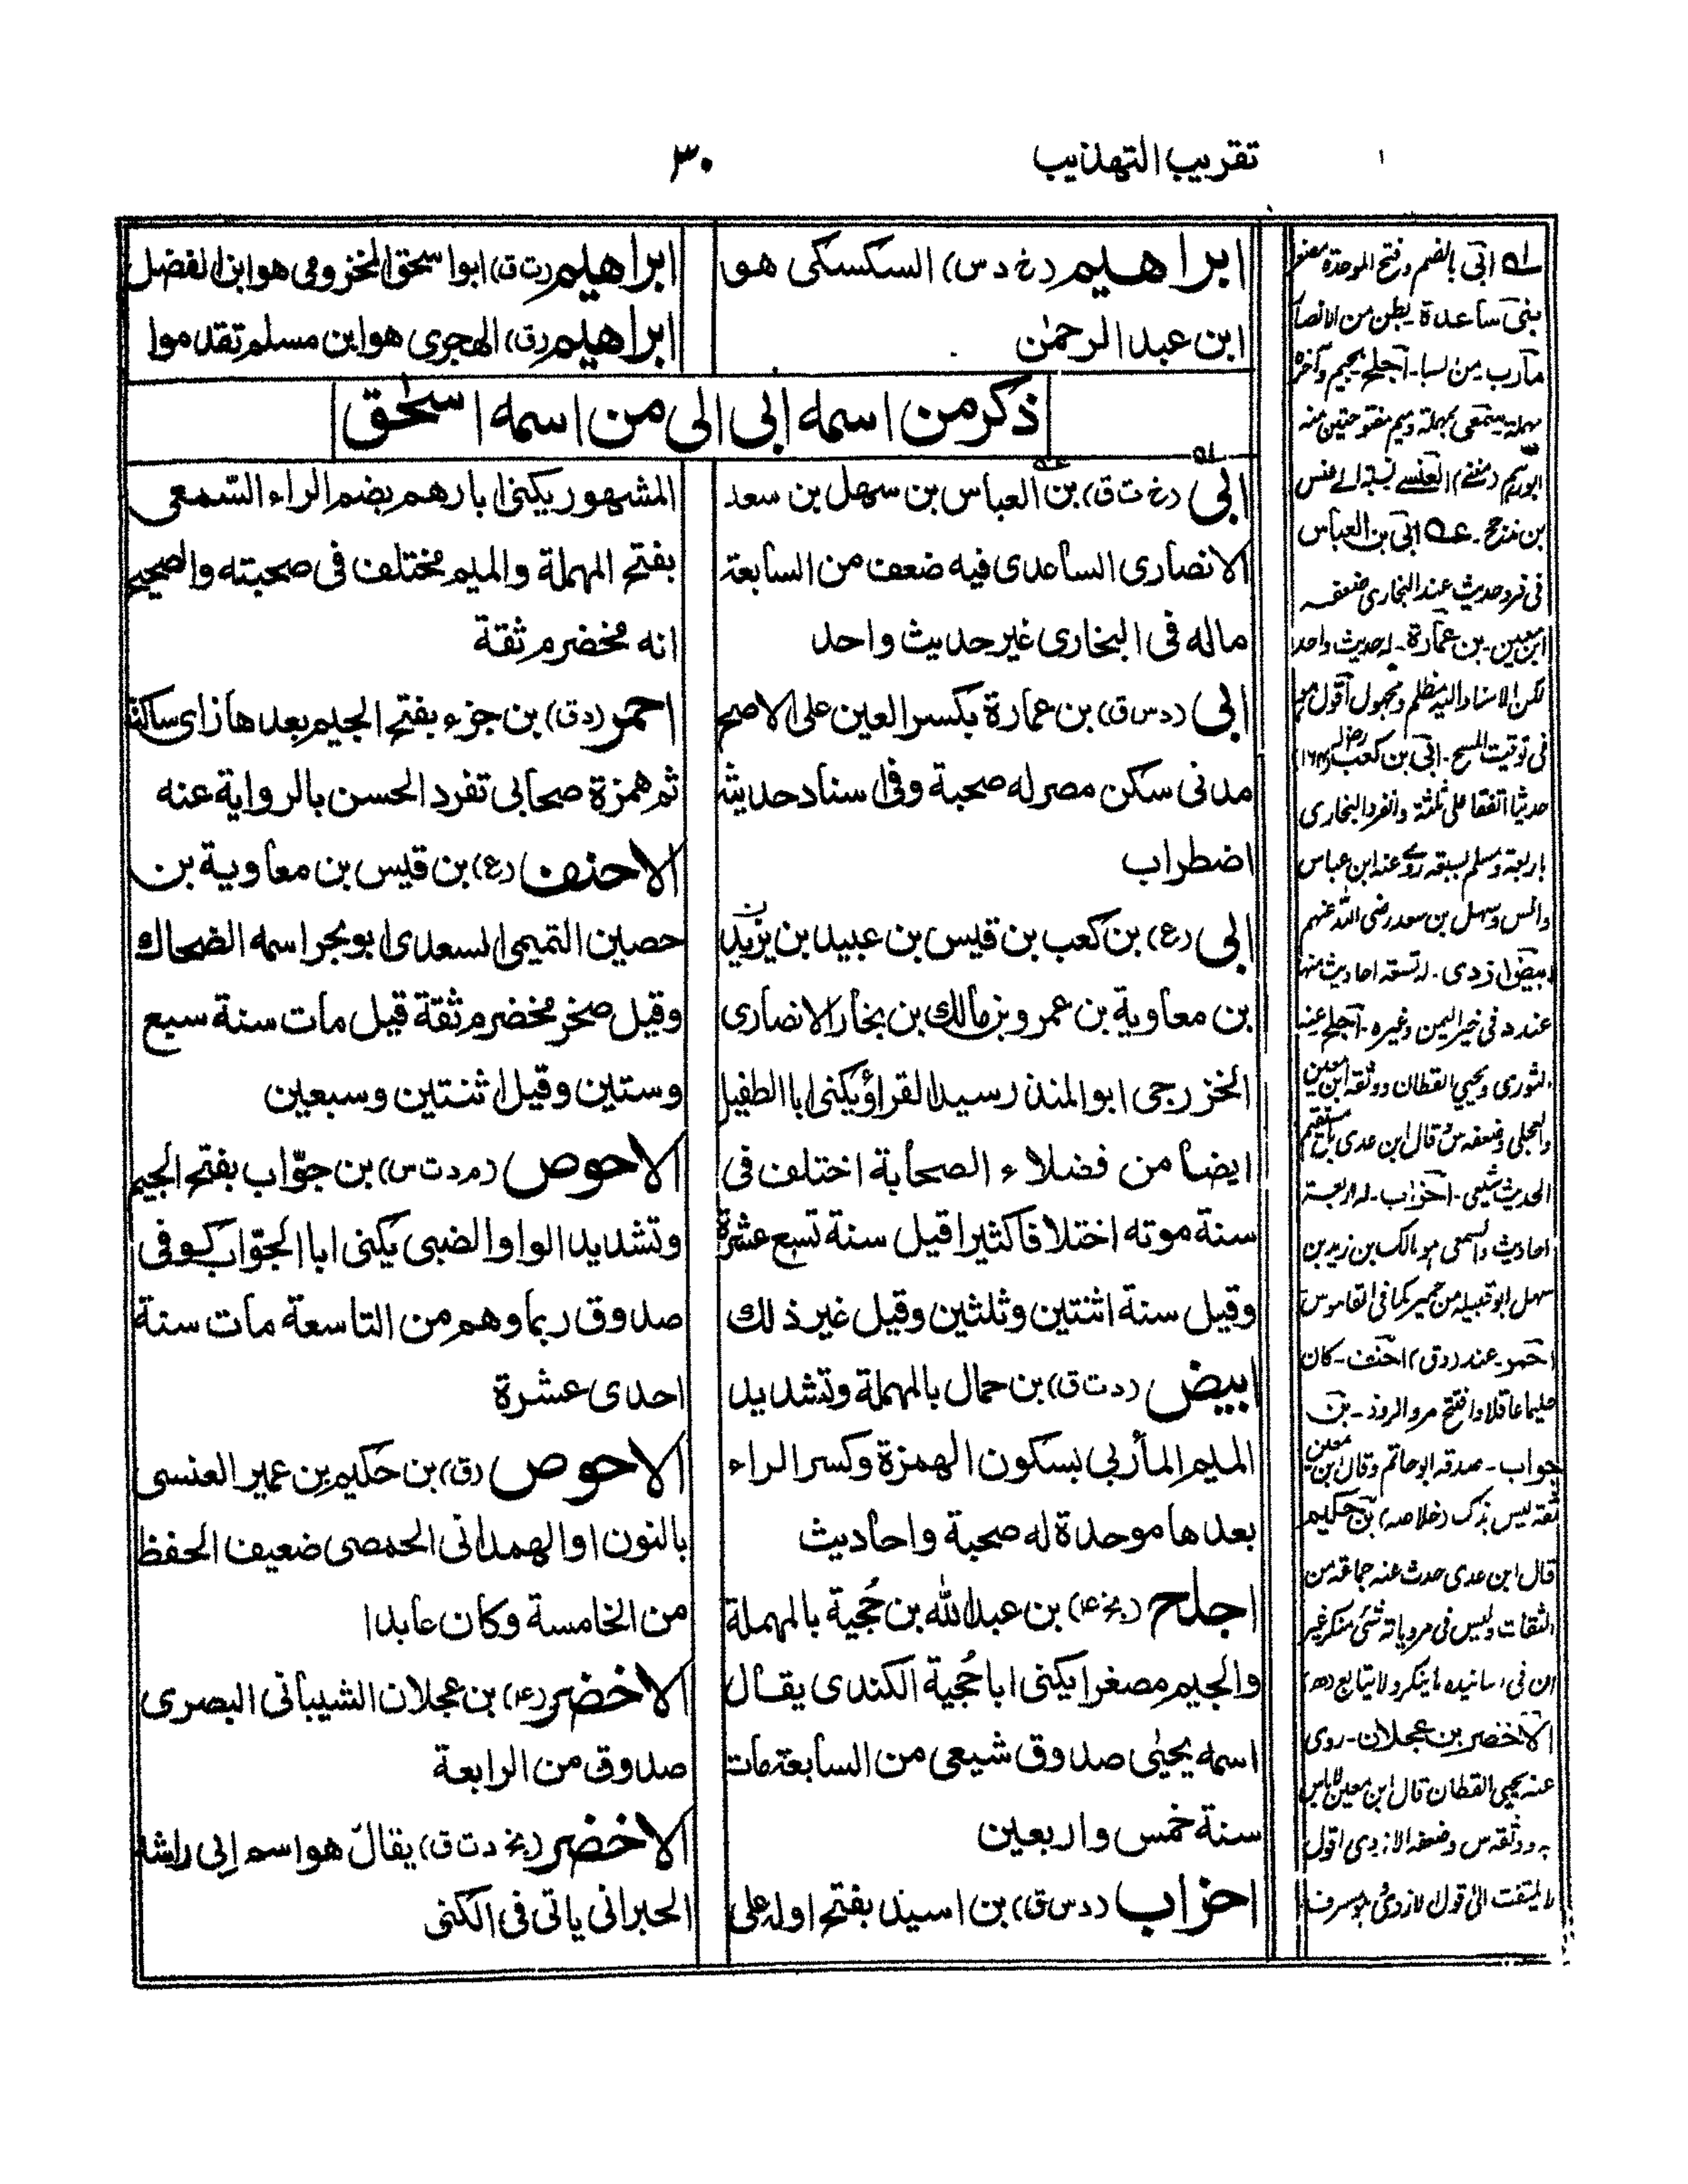 تقريب التهذيب
٣٠
ابراهيم (خ د س) السكسكى هو
ابن عبد الرحمٰن
ابراهيم (ت ق) ابو اسحق المخزومى هو ابن الفضل
ابراهيم (ق) الهجرى هو ابن مسلم تقدموا
ذكر من اسمه ابى الى من اسمه اسحٰق
ابى (خ ت ق) بن العباس بن سهل بن سعد
الانصارى الساعدى فيه ضعف من السابعة
ماله فى البخارى غير حديث واحد
ابى (د س ق) بن عمارة بكسر العين على الاصح
مدنى سكن مصر له صحبة وفى اسناد حديثه
اضطراب
ابى (ع) بن كعب بن قيس بن عبيد بن يزيد
بن معاوية بن عمرو بن مالك بن نجار الانصارى
الخزرجى ابو المنذر سيد القراء ويكنى ابا الطفيل
ايضا من فضلاء الصحابة اختلف فى
سنة موته اختلافا كثيرا قيل سنة تسع عشرة
وقيل سنة اثنتين وثلثين وقيل غير ذلك
ابيض (د ت ق) بن حمال بالمهملة وتشديد
الميم المأربى بسكون الهمزة وكسر الراء
بعدها موحدة له صحبة واحاديث
اجلح (بخ ٤) بن عبد الله بن حُجية بالمهملة
والجيم مصغرا يكنى ابا حُجية الكندى يقال
اسمه يحيٰى صدوق شيعى من السابعة مات
سنة خمس واربعين
احزاب (د س ق) بن اسيد بفتح اوله على
المشهور يكنى ابا رهم بضم الراء السّمعى
بفتح المهملة والميم مُختلف فى صحبته والصحيح
انه مُخضرم ثقة
احمر (د ق) بن جزء بفتح الجيم بعدها زاى ساكنة
ثم همزة صحابى تفرد الحسن بالرواية عنه
الاحنف (ع) بن قيس بن معاوية بن
حصين التميمى السعدى ابو بحر اسمه الضحاك
وقيل صخر مُخضرم ثقة قيل مات سنة سبع
وستين وقيل اثنتين وسبعين
الاحوص (م د ت س) بن جوّاب بفتح الجيم
وتشديد الواو الضبى يكنى ابا الجوّاب كوفى
صدوق ربما وهم من التاسعة مات سنة
احدى عشرة
الاحوص (ق) بن حكيم بن عمير العنسى
بالنون او الهمدانى الحمصى ضعيف الحفظ
من الخامسة وكان عابدا
الاخضر (٤) بن عجلان الشيبانى البصرى
صدوق من الرابعة
الاخضر (بخ د ت ق) يقال هو اسم ابى راشد
الحبرانى ياتى فى الكنى
له ابى بالضم وفتح الموحدة مصغر
بنى ساعدة بطن من الانصار
مأرب من سبا - اجلح بجيم وآخره
مهملة سمعى بمهملة وميم مفتوحتين منه
ابو رهم (مغنى) العنسى نسبة الى عنس
بن مذحج - عه ابى بن العباس
فى فرد حديث عند البخارى ضعفه
ابن معين - بن عمارة - له حديث واحد
لكن الاسناد اليه مظلم ومجهول اقول هو
فى توقيت المسح - ابى بن كعب رض له (١٦٤)
حديثا اتفقا على ثلثة وانفرد البخارى
باربعة ومسلم بسبعة روى عنه ابن عباس
وانس وسهل بن سعد رضى الله عنهم
ابيض ازدى - له تسعة احاديث منها
عند د فى خبر اليمن وغيره - اجلح عنه
الثورى ويحيى القطان ووثقه ابن معين
والعجلى وضعفه س قال ابن عدى مستقيم
الحديث شيعى - احزاب - له اربعة
احاديث والسمعى هو مالك بن زيد بن
سهل ابو قبيلة من حمير كما فى القاموس
احمر - عند (د ق) احنف - كان
حليما عاقلا وافتتح مرو الروذ - بن
جواب - صدقه ابو حاتم وقال ابن معين
ثقة ليس بذاك (خلاصه) بن حكيم
قال ابن عدى حدث عنه جماعة من
الثقات وليس فى مروياته شئ منكر غير
ان فى اسانيده ما ينكر ولا يتابع
الاخضر بن عجلان - روى
عنه يحيى القطان قال ابن معين لا باس
به ووثقه س وضعفه الازدى اقول
لا يلتفت الى قول الازدى هو مسرف